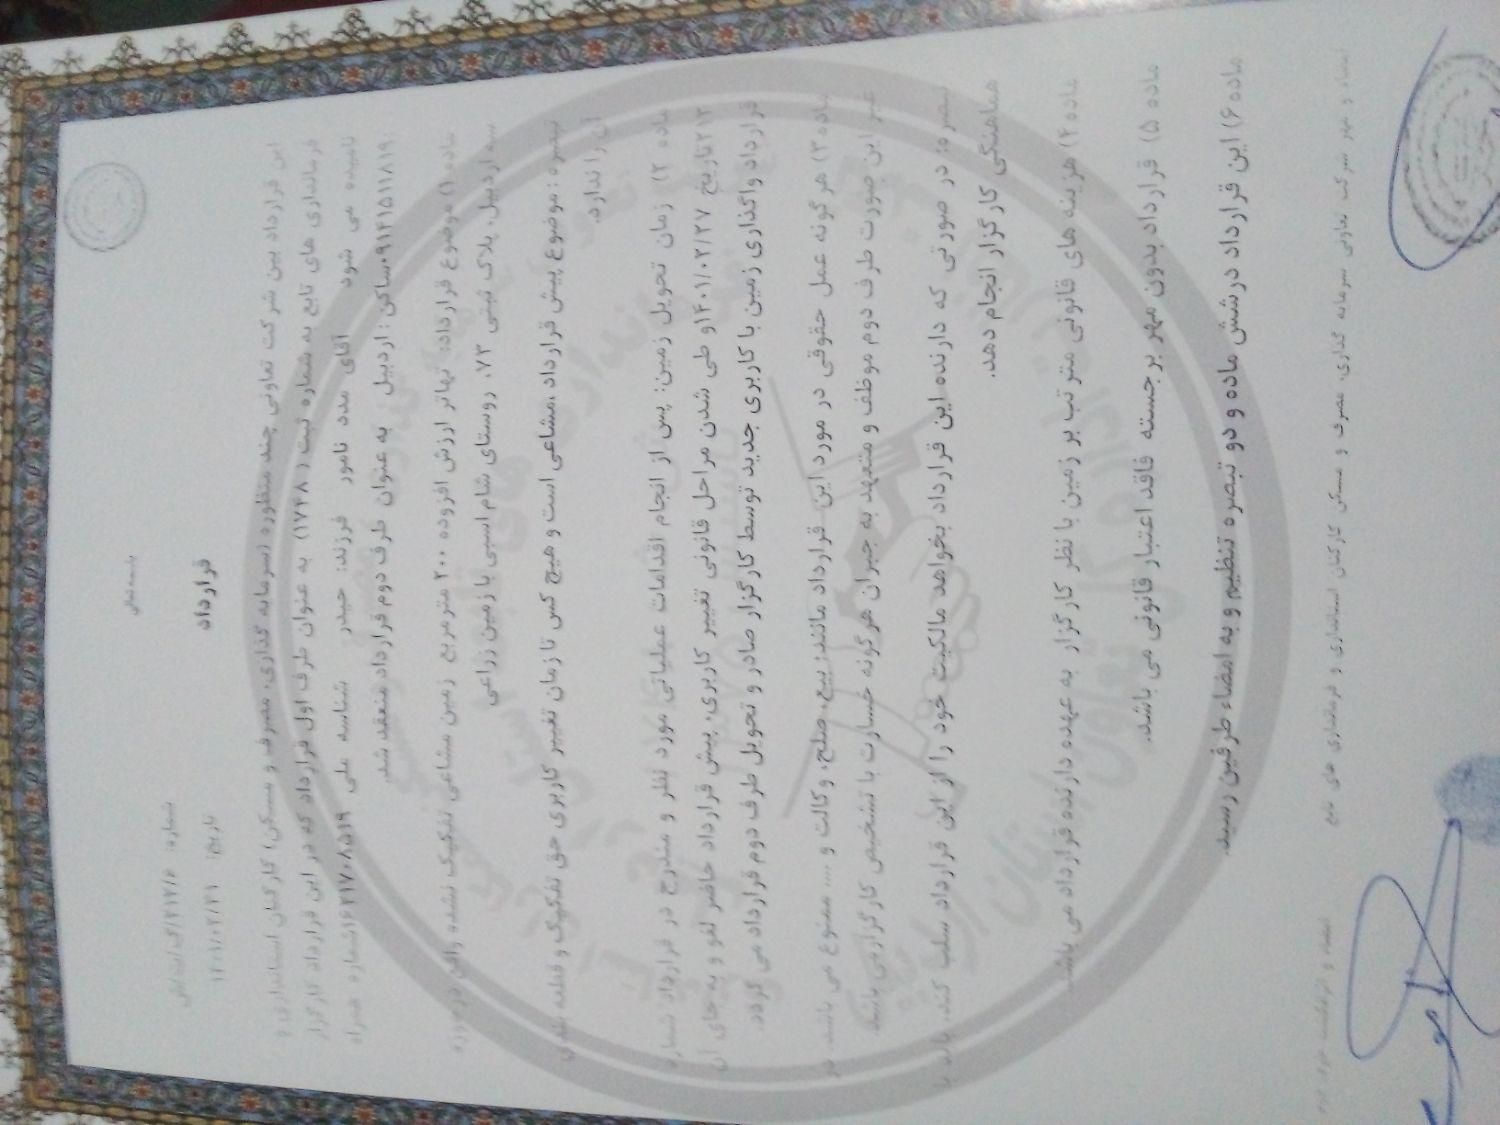 باسمه تعالی
قرارداد
شماره: ۲۱۲/۶/گ/پ
تاریخ: ۱۴۰۱/۰۳/۳۱
این قرارداد بین شرکت تعاونی چند منظوره (سرمایه گذاری، مصرف و مسکن) کارکنان استانداری و
فرمانداری های تابع به شماره ثبت (۱۷۴۸) به عنوان طرف اول قرارداد که در این قرارداد کارگزار
نامیده می شود آقای مدد نامور فرزند: حیدر شناسه ملی شماره همراه
ساکن: اردبیل به عنوان طرف دوم قرارداد منعقد شد.
ماده ۱) موضوع قرارداد: تهاتر ارزش افزوده ۲۰۰ متر مربع زمین مشاعی تفکیک نشده واقع در حوزه
سه اردبیل، پلاک ثبتی ۷۳، روستای شام اسبی با زمین زراعی
تبصره: موضوع پیش قرارداد، مشاعی است و هیچ کس تا زمان تغییر کاربری حق تفکیک و قطعه بندی
آن را ندارد.
ماده ۲) زمان تحویل زمین: پس از انجام اقدامات عملیاتی مورد نظر و مندرج در قرارداد شماره
۲۱۲ تاریخ ۱۴۰۱/۰۲/۲۷ و طی شدن مراحل قانونی تغییر کاربری، پیش قرارداد حاضر لغو و به جای آن
قرارداد واگذاری زمین با کاربری جدید توسط کارگزار صادر و تحویل طرف دوم قرارداد می گردد.
ماده ۳) هرگونه عمل حقوقی در مورد این قرارداد مانند: بیع، صلح، وکالت و .... ممنوع می باشد. در
غیر این صورت طرف دوم موظف و متعهد به جبران هرگونه خسارت با تشخیص کارگزار می باشد.
تبصره: در صورتی که دارنده این قرارداد بخواهد مالکیت خود را از این قرارداد سلب کند، باید با
هماهنگی کارگزار انجام دهد.
ماده ۴) هزینه های قانونی مترتب بر زمین با نظر کارگزار به عهده دارنده قرارداد می باشد.
ماده ۵) قرارداد بدون مهر برجسته فاقد اعتبار قانونی می باشد.
ماده ۶) این قرارداد در شش ماده و دو تبصره تنظیم و به امضاء طرفین رسید.
امضاء و مهر شرکت تعاونی سرمایه گذاری، مصرف و مسکن کارکنان استانداری و فرمانداری های تابع
امضاء و اثر انگشت طرف دوم